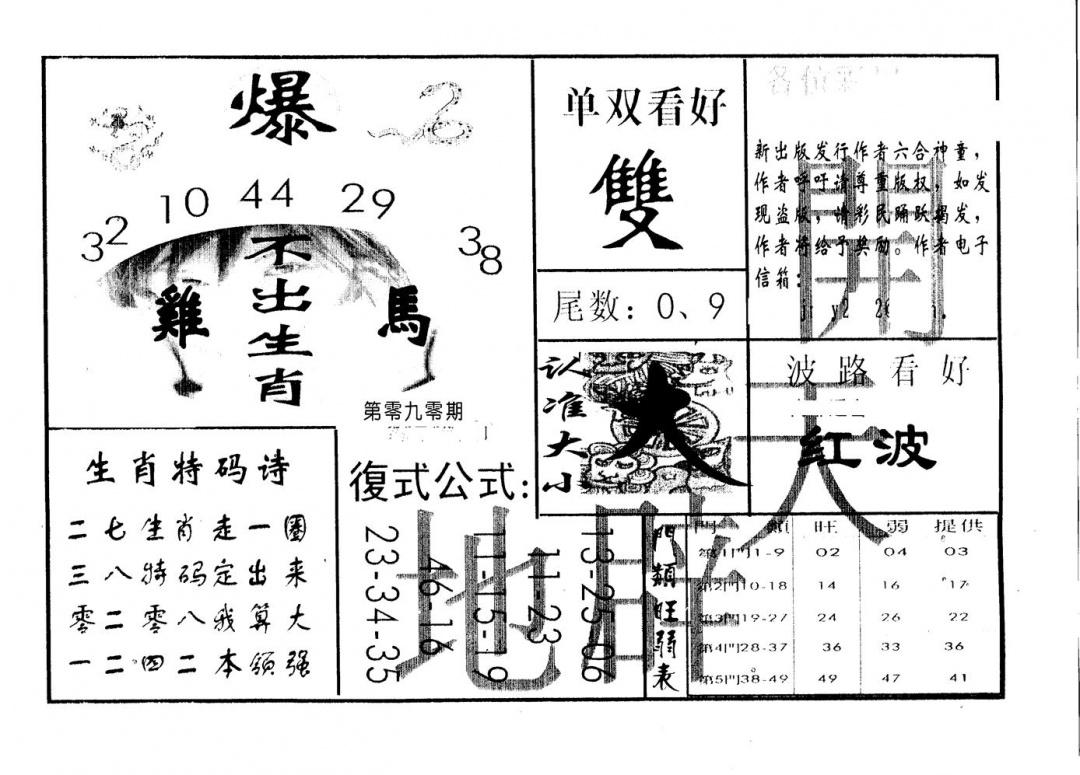 爆
32 10 44 29 38
不出生肖
雞 馬
第零九零期
单双看好
雙
尾数：0、9
新出版发行作者六合神童，
作者呼吁请尊重版权，如发
现盗版，请彩民踊跃揭发，
作者将给予奖励。作者电子
信箱：
认准大小
大
波路看好
红波
生肖特码诗
二七生肖走一圈
三八特码定出来
零二零八我算大
一二四二本领强
復式公式：
23-34-35
46-16
11-15-19
11-23
13-25-06
門類旺弱表
門類 旺 弱 提供
第1門1-9 02 04 03
第2門10-18 14 16 17
第3門19-27 24 26 22
第4門28-37 36 33 36
第5門38-49 49 47 41